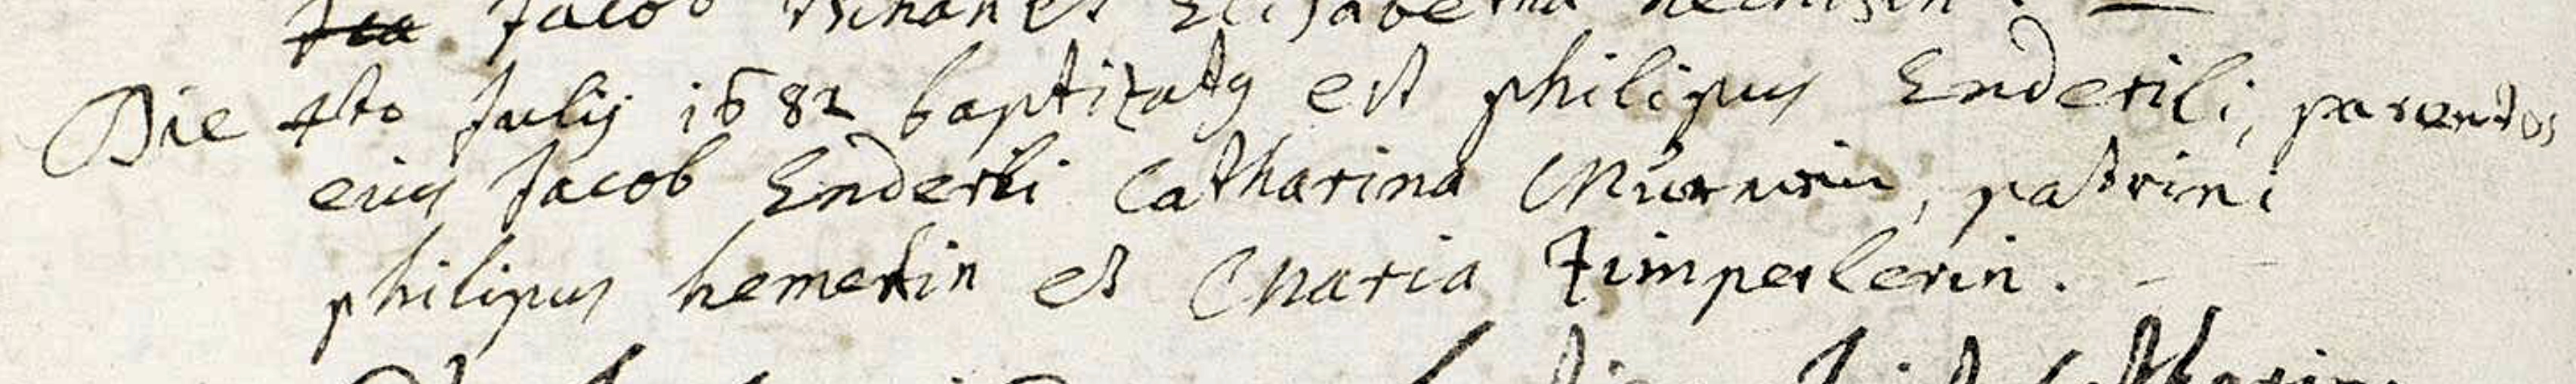 Jacob Tschan et Elisabetha
Die 4to Julij 1682 baptizatg est philipus Enderili, parentes
eius Jacob Enderli Catharina Murnirin, patrini
philipus hemerlin et Maria Zimperlerin. -